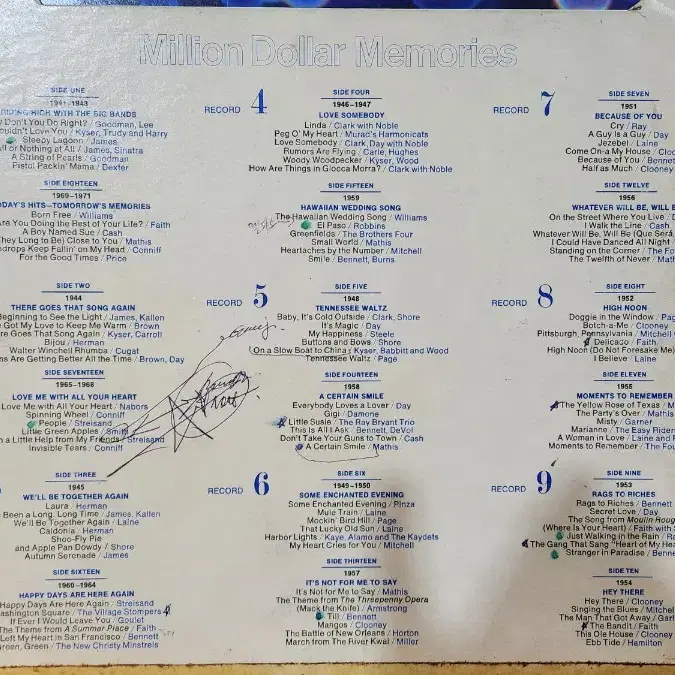 Million Dollar Memories
SIDE ONE
1941-1943
RIDING HIGH WITH THE BIG BANDS
Don't You Do Right? / Goodman, Lee
Couldn't Love You / Kyser, Trudy and Harry
Sleepy Lagoon / James
All or Nothing at All / James, Sinatra
A String of Pearls / Goodman
Pistol Packin' Mama / Dexter
SIDE EIGHTEEN
1969-1971
TODAY'S HITS-TOMORROW'S MEMORIES
Born Free / Williams
Are You Doing the Rest of Your Life? / Faith
A Boy Named Sue / Cash
(They Long to Be) Close to You / Mathis
Raindrops Keep Fallin' on My Head / Conniff
For the Good Times / Price
SIDE TWO
1944
THERE GOES THAT SONG AGAIN
Beginning to See the Light / James, Kallen
Got My Love to Keep Me Warm / Brown
There Goes That Song Again / Kyser, Carroll
Bijou / Herman
Walter Winchell Rhumba / Cugat
Are Getting Better All the Time / Brown, Day
SIDE SEVENTEEN
1965-1968
LOVE ME WITH ALL YOUR HEART
Love Me with All Your Heart / Nabors
Spinning Wheel / Conniff
People / Streisand
Little Green Apples / Smith
a Little Help from My Friends / Streisand
Invisible Tears / Conniff
SIDE THREE
1945
WE'LL BE TOGETHER AGAIN
Laura / Herman
Been a Long, Long Time / James, Kallen
We'll Be Together Again / Laine
Caldonia / Herman
Shoo-Fly Pie
and Apple Pan Dowdy / Shore
Autumn Serenade / James
SIDE SIXTEEN
1960-1964
HAPPY DAYS ARE HERE AGAIN
Happy Days Are Here Again / Streisand
Washington Square / The Village Stompers
If Ever I Would Leave You / Goulet
The Theme from A Summer Place / Faith
Left My Heart in San Francisco / Bennett
Green, Green / The New Christy Minstrels
RECORD 4
SIDE FOUR
1946-1947
LOVE SOMEBODY
Linda / Clark with Noble
Peg O' My Heart / Murad's Harmonicats
Love Somebody / Clark, Day with Noble
Rumors Are Flying / Carle, Hughes
Woody Woodpecker / Kyser, Wood
How Are Things in Glocca Morra? / Clark with Noble
SIDE FIFTEEN
1959
HAWAIIAN WEDDING SONG
The Hawaiian Wedding Song / Williams
El Paso / Robbins
Greenfields / The Brothers Four
Small World / Mathis
Heartaches by the Number / Mitchell
Smile / Bennett, Burns
RECORD 5
SIDE FIVE
1948
TENNESSEE WALTZ
Baby, It's Cold Outside / Clark, Shore
It's Magic / Day
My Happiness / Steele
Buttons and Bows / Shore
On a Slow Boat to China / Kyser, Babbitt and Wood
Tennessee Waltz / Page
SIDE FOURTEEN
1958
A CERTAIN SMILE
Everybody Loves a Lover / Day
Gigi / Damone
Little Susie / The Ray Bryant Trio
This Is All I Ask / Bennett, DeVol
Don't Take Your Guns to Town / Cash
A Certain Smile / Mathis
RECORD 6
SIDE SIX
1949-1950
SOME ENCHANTED EVENING
Some Enchanted Evening / Pinza
Mule Train / Laine
Mockin' Bird Hill / Page
That Lucky Old Sun / Laine
Harbor Lights / Kaye, Alamo and The Kaydets
My Heart Cries for You / Mitchell
SIDE THIRTEEN
1957
IT'S NOT FOR ME TO SAY
It's Not for Me to Say / Mathis
The Theme from The Threepenny Opera
(Mack the Knife) / Armstrong
Till / Bennett
Mangos / Clooney
The Battle of New Orleans / Horton
March from The River Kwai / Miller
RECORD 7
SIDE SEVEN
1951
BECAUSE OF YOU
Cry / Ray
A Guy Is a Guy / Day
Jezebel / Laine
Come On-a My House /
Because of You / Bennett
Half as Much / Clooney
SIDE TWELVE
1956
WHATEVER WILL BE, WILL
On the Street Where You Live /
I Walk the Line / Cash
Whatever Will Be, Will Be (Que Será,
I Could Have Danced All Night /
Standing on the Corner / The
The Twelfth of Never /
RECORD 8
SIDE EIGHT
1952
HIGH NOON
Doggie in the Window /
Botch-a-Me / Clooney
Pittsburgh, Pennsylvania /
Delicado / Faith
High Noon (Do Not Forsake Me)
I Believe / Laine
SIDE ELEVEN
1955
MOMENTS TO REMEMBER
The Yellow Rose of Texas /
The Party's Over / Mathis
Misty / Garner
Marianne / The Easy Riders
A Woman in Love / Laine and
Moments to Remember / The
RECORD 9
SIDE NINE
1953
RAGS TO RICHES
Rags to Riches / Bennett
Secret Love / Day
The Song from Moulin Rouge
(Where Is Your Heart) / Faith with
Just Walking in the Rain /
The Gang That Sang "Heart of My
Stranger in Paradise /
SIDE TEN
1954
HEY THERE
Hey There / Clooney
Singing the Blues / Mitchell
The Man That Got Away /
The Bandit / Faith
This Ole House / Clooney
Ebb Tide / Hamilton